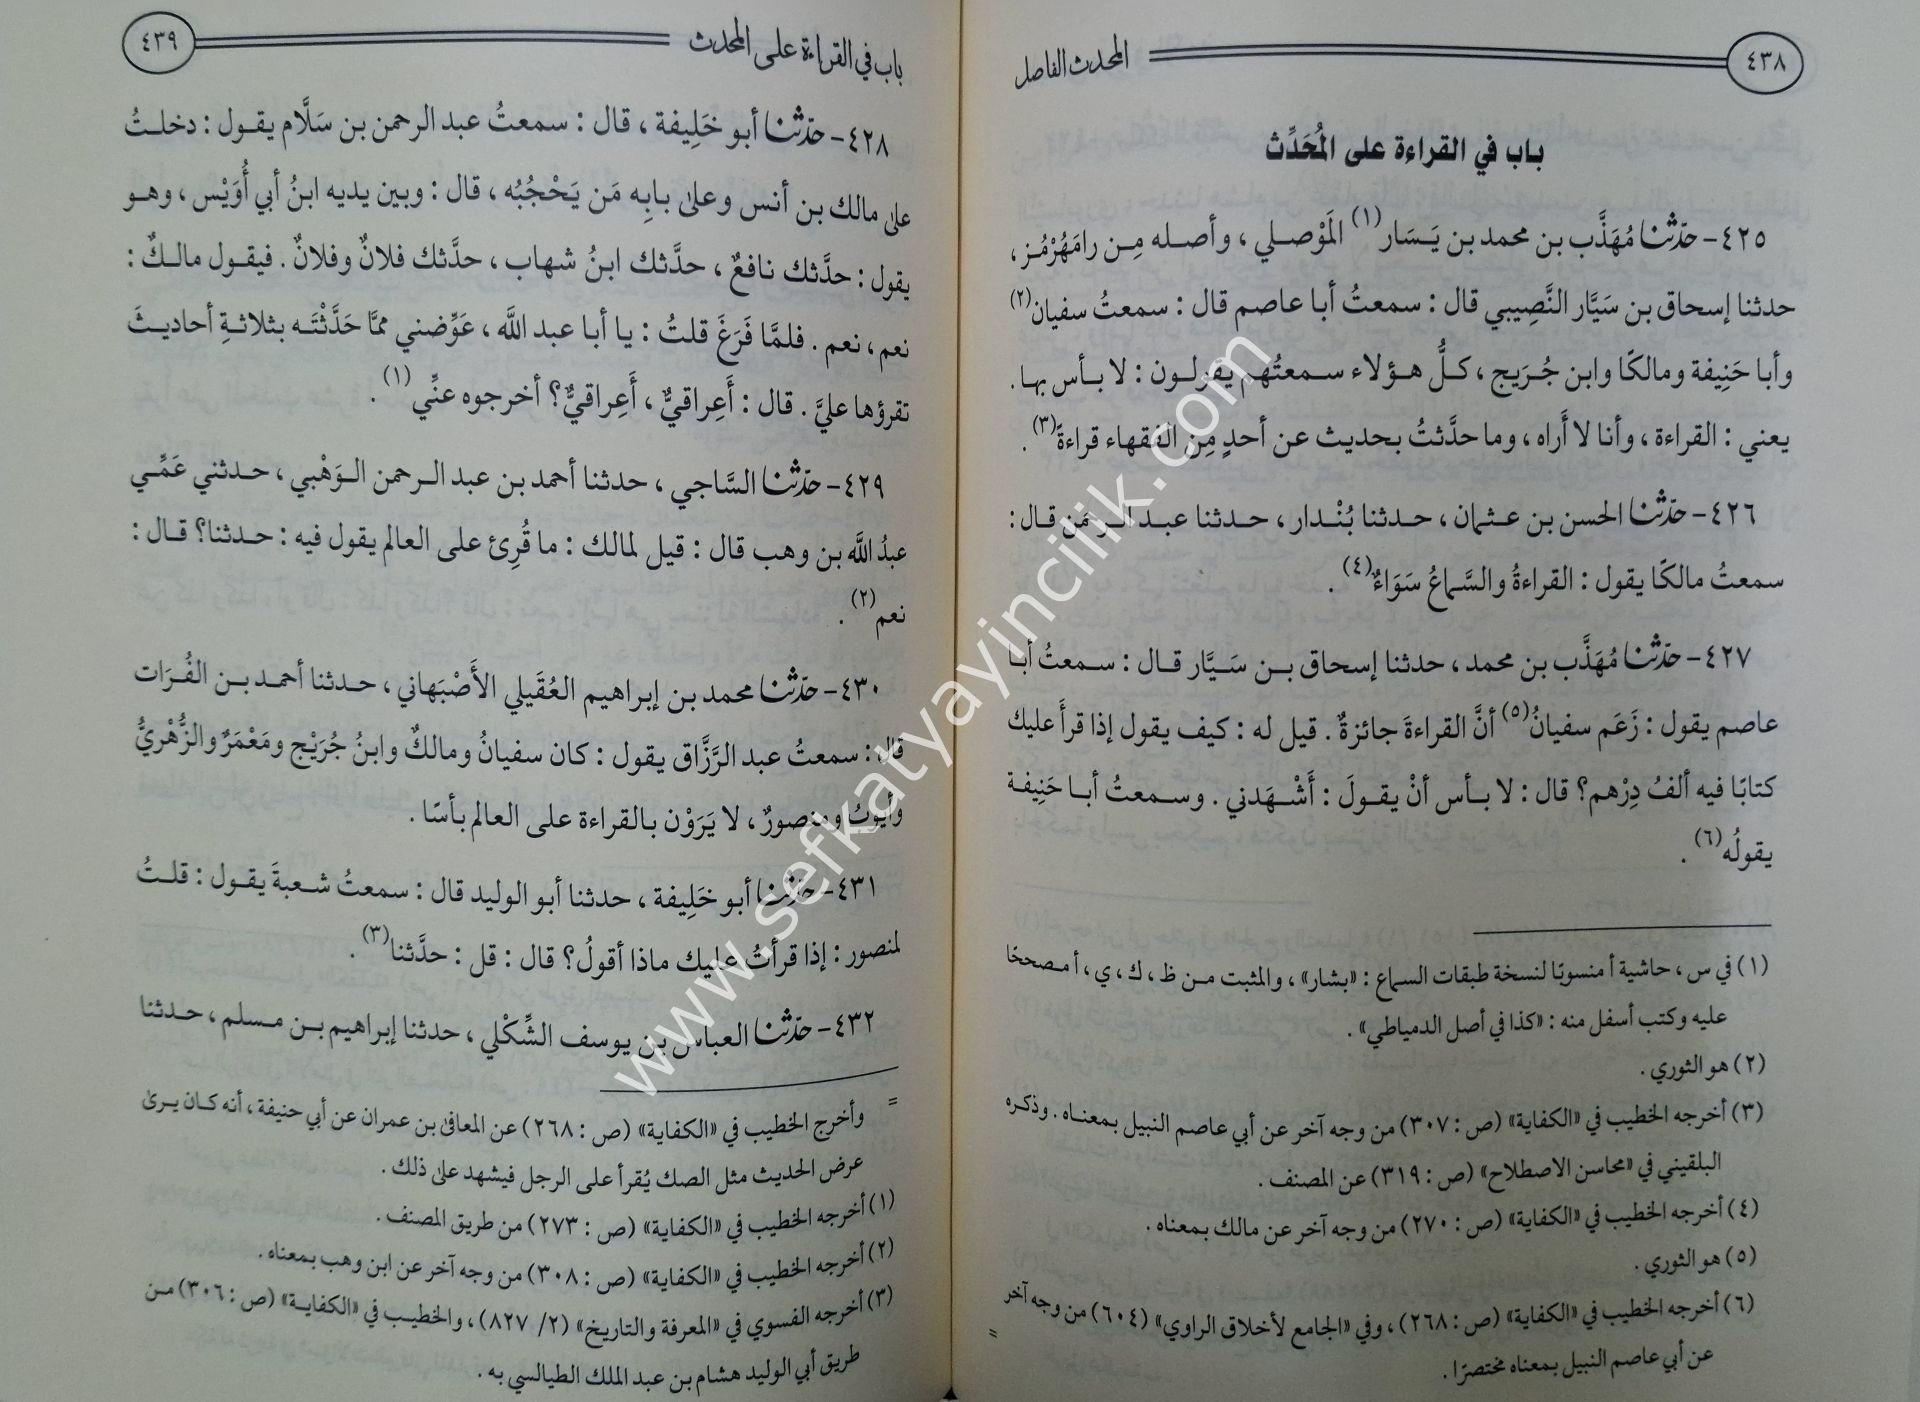 ٤٣٨
المحدث الفاصل
باب في القراءة على المُحَدِّث
٤٢٥- حدّثنا مُهَذَّب بن محمد بن يَسَار(١) المَوْصلي ، وأصله مِن رامَهُرْمُز ،
حدثنا إسحاق بن سَيَّار النَّصِيبي قال : سمعتُ أبا عاصم قال : سمعتُ سفيان(٢)
وأبا حَنِيفة ومالكًا وابن جُرَيج ، كلُّ هؤلاء سمعتُهم يقولون : لا بأس بها .
يعني : القراءة ، وأنا لا أَراه ، وما حدَّثتُ بحديث عن أحدٍ مِن الفقهاء قراءةً(٣) .
٤٢٦- حدّثنا الحسن بن عثمان ، حدثنا بُنْدار ، حدثنا عبد الرحمن قال :
سمعتُ مالكًا يقول : القراءةُ والسَّماعُ سَوَاءٌ(٤) .
٤٢٧- حدّثنا مُهَذَّب بن محمد ، حدثنا إسحاق بن سَيَّار قال : سمعتُ أبا
عاصم يقول : زَعَم سفيانُ(٥) أنَّ القراءةَ جائزةٌ . قيل له : كيف يقول إذا قرأَ عليك
كتابًا فيه ألفُ دِرْهم؟ قال : لا بأس أنْ يقولَ : أَشْهَدني . وسمعتُ أبا حَنِيفة
يقولُه(٦) .
(١) في س ، حاشية أ منسوبًا لنسخة طبقات السماع : «بشار» ، والمثبت من ظ ، ك ، ي ، أ مصححًا
عليه وكتب أسفل منه : «كذا في أصل الدمياطي» .
(٢) هو الثوري .
(٣) أخرجه الخطيب في «الكفاية» (ص : ٣٠٧) من وجه آخر عن أبي عاصم النبيل بمعناه . وذكره
البلقيني في «محاسن الاصطلاح» (ص : ٣١٩) عن المصنف .
(٤) أخرجه الخطيب في «الكفاية» (ص : ٢٧٠) من وجه آخر عن مالك بمعناه .
(٥) هو الثوري .
(٦) أخرجه الخطيب في «الكفاية» (ص : ٢٦٨) ، وفي «الجامع لأخلاق الراوي» (٦٠٤) من وجه آخر
عن أبي عاصم النبيل بمعناه مختصرًا .
=
باب في القراءة على المحدث
٤٣٩
٤٢٨- حدّثنا أبو خَلِيفة ، قال : سمعتُ عبد الرحمن بن سَلَّام يقول : دخلتُ
على مالك بن أنس وعلى بابِه مَن يَحْجُبُه ، قال : وبين يديه ابنُ أبي أُوَيْس ، وهو
يقول : حدَّثك نافعٌ ، حدَّثك ابنُ شهاب ، حدَّثك فلانٌ وفلانٌ . فيقول مالكٌ :
نعم ، نعم . فلمَّا فَرَغَ قلتُ : يا أبا عبد الله ، عَوِّضني ممَّا حَدَّثْتَه بثلاثةِ أحاديثَ
تقرؤها عليَّ . قال : أَعِراقيٌّ ، أَعِراقيٌّ؟ أخرجوه عنِّي(١) .
٤٢٩- حدّثنا السَّاجي ، حدثنا أحمد بن عبد الرحمن الوَهْبي ، حدثني عَمِّي
عبدُ الله بن وهب قال : قيل لمالك : ما قُرِئ على العالم يقول فيه : حدثنا؟ قال :
نعم(٢) .
٤٣٠- حدّثنا محمد بن إبراهيم العُقَيلي الأَصْبَهاني ، حدثنا أحمد بن الفُرَات
قال : سمعتُ عبد الرَّزَّاق يقول : كان سفيانُ ومالكٌ وابنُ جُرَيْج ومَعْمَرٌ والزُّهْريُّ
وأيوبُ ومنصورٌ ، لا يَرَوْن بالقراءة على العالم بأسًا .
٤٣١- حدّثنا أبو خَلِيفة ، حدثنا أبو الوليد قال : سمعتُ شعبةَ يقول : قلتُ
لمنصور : إذا قرأتُ عليك ماذا أقولُ؟ قال : قل : حدَّثنا(٣) .
٤٣٢- حدّثنا العباس بن يوسف الشِّكْلي ، حدثنا إبراهيم بن مسلم ، حدثنا
= وأخرج الخطيب في «الكفاية» (ص : ٢٦٨) عن المعافى بن عمران عن أبي حنيفة ، أنه كان يرى
عرض الحديث مثل الصك يُقرأ على الرجل فيشهد على ذلك .
(١) أخرجه الخطيب في «الكفاية» (ص : ٢٧٣) من طريق المصنف .
(٢) أخرجه الخطيب في «الكفاية» (ص : ٣٠٨) من وجه آخر عن ابن وهب بمعناه .
(٣) أخرجه الفسوي في «المعرفة والتاريخ» (٢/ ٨٢٧) ، والخطيب في «الكفاية» (ص : ٣٠٦) من
طريق أبي الوليد هشام بن عبد الملك الطيالسي به .
www.sefkatyayincilik.com